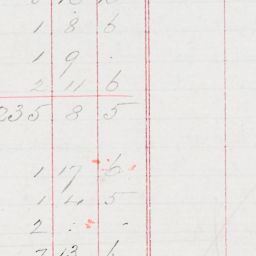 1 8 6
1 9 .
2 11 6
235 8 5
1 17 6
1 4 5
2 : -
7 13 6